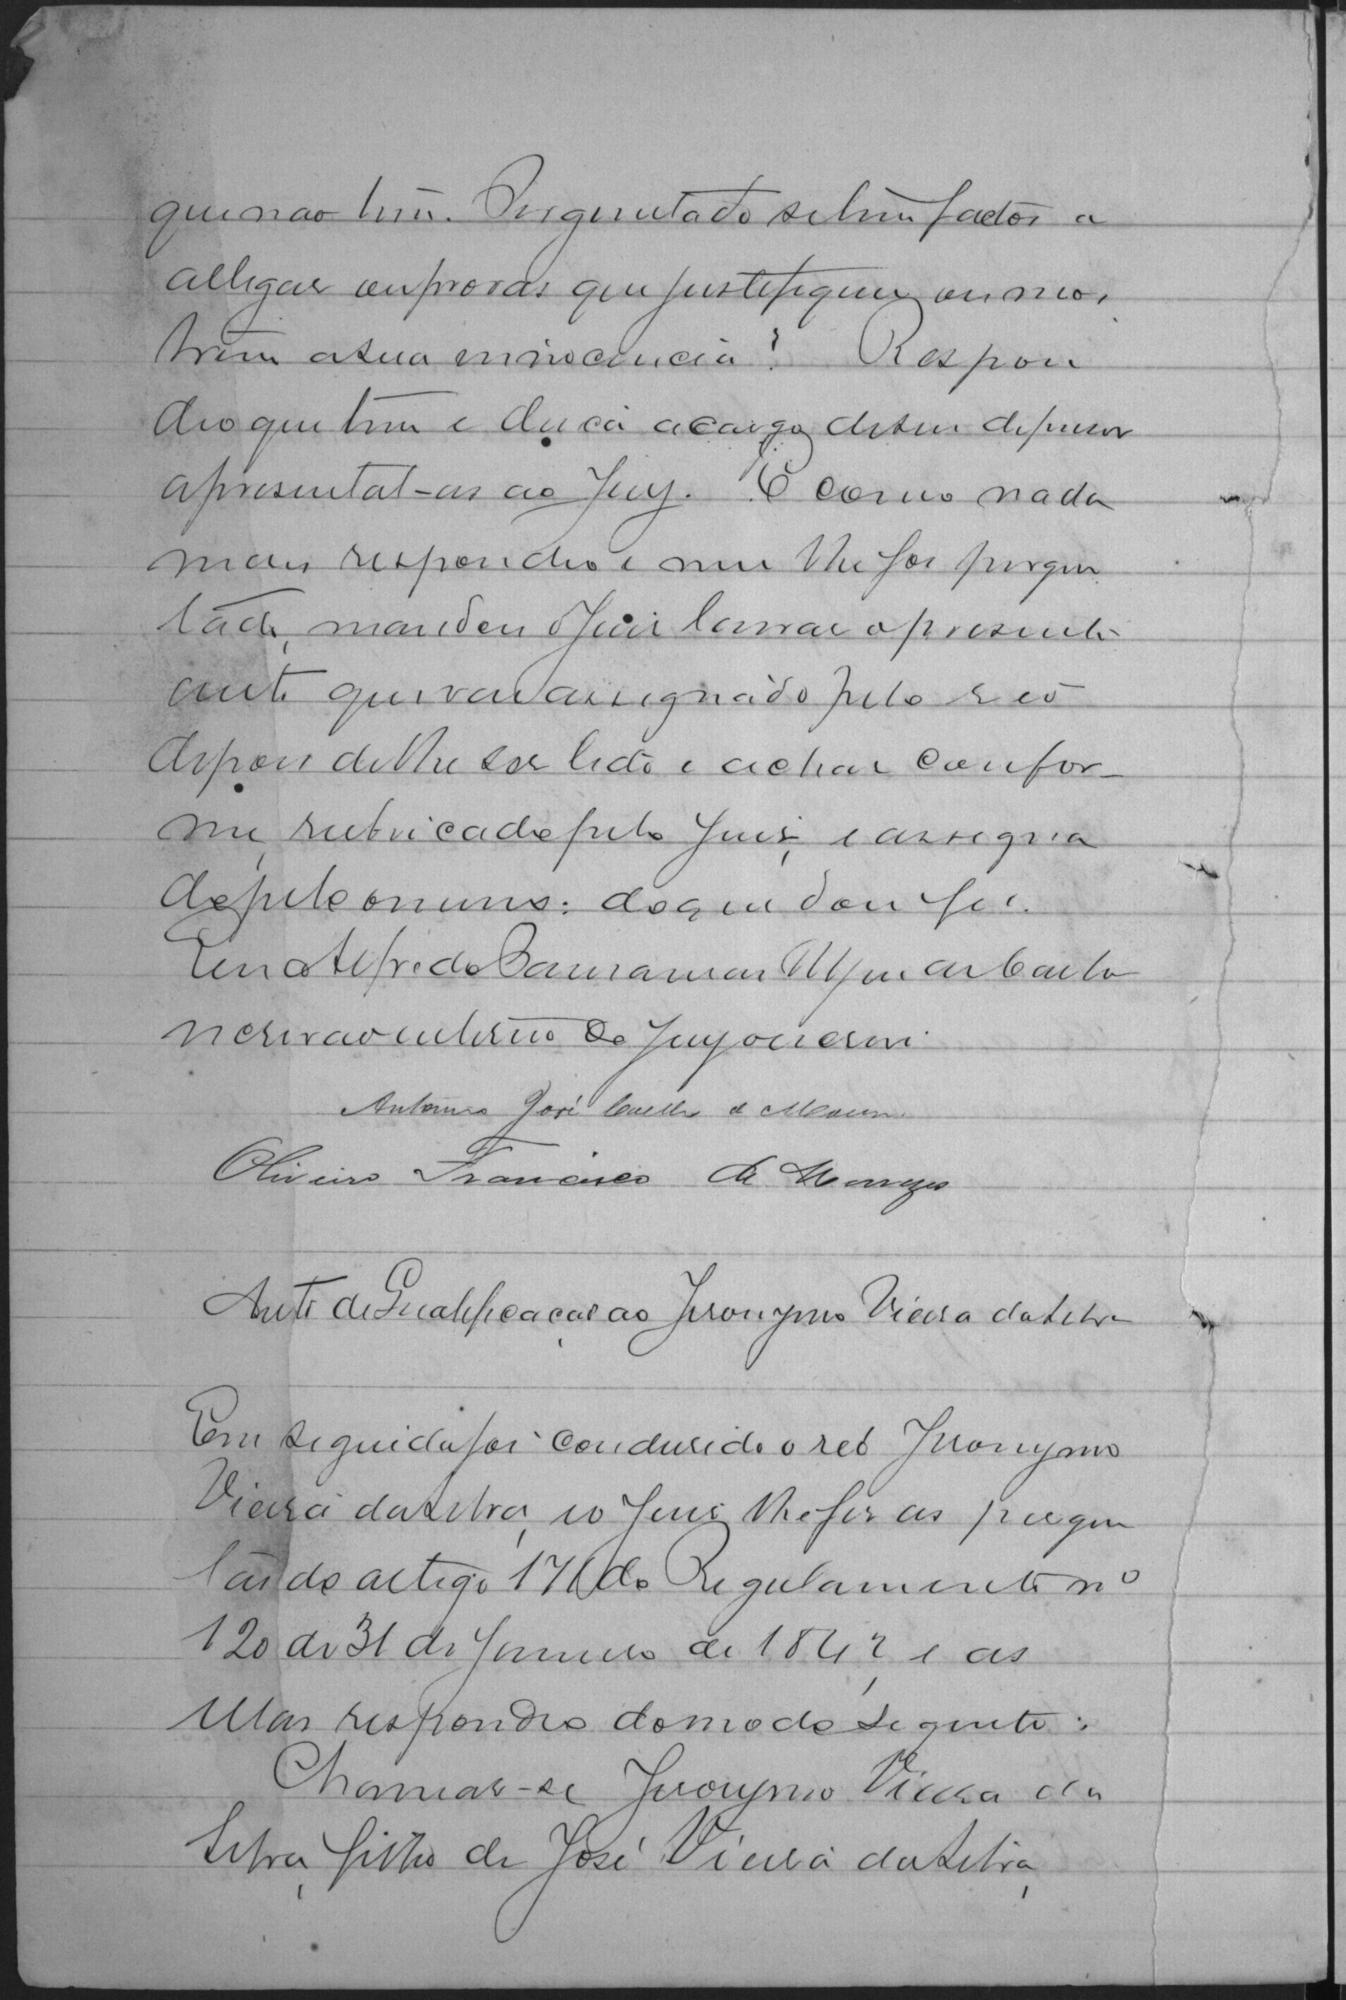 que não tem. Perguntado se tem factos a
allegar ou provas que justifiquem ou mos
trem a sua innocencia? Respon
deo que tem e deixa a cargo de seu defensor
apresental-as ao Jury. E como nada
mais respondeo e nem lhe foi pergun
tado, mandou o Juiz lavrar o presente
auto que vai assignado pelo reo
depois de lhe ser lido e achar confor-
me, rubricado pelo Juiz, e assigna
do pelo mesmo: do que dou fé.
Eu Alfredo
escrivão interino do Jury o escrevi.
Antonio José de
Oliveiro Francisco de Moraes
Auto de Qualificação ao Jeronymo Vieira da Silva
Em seguida foi conduzido o reo Jeronymo
Vieira da Silva, e o Juiz lhe fez as pergun
tas do artigo 171 do Regulamento nº
120 de 31 de Janeiro de 1842, e as
ellas respondeo do modo seguinte:
Chamar-se Jeronymo Vieira da
Silva, filho de José Vieira da Silva,